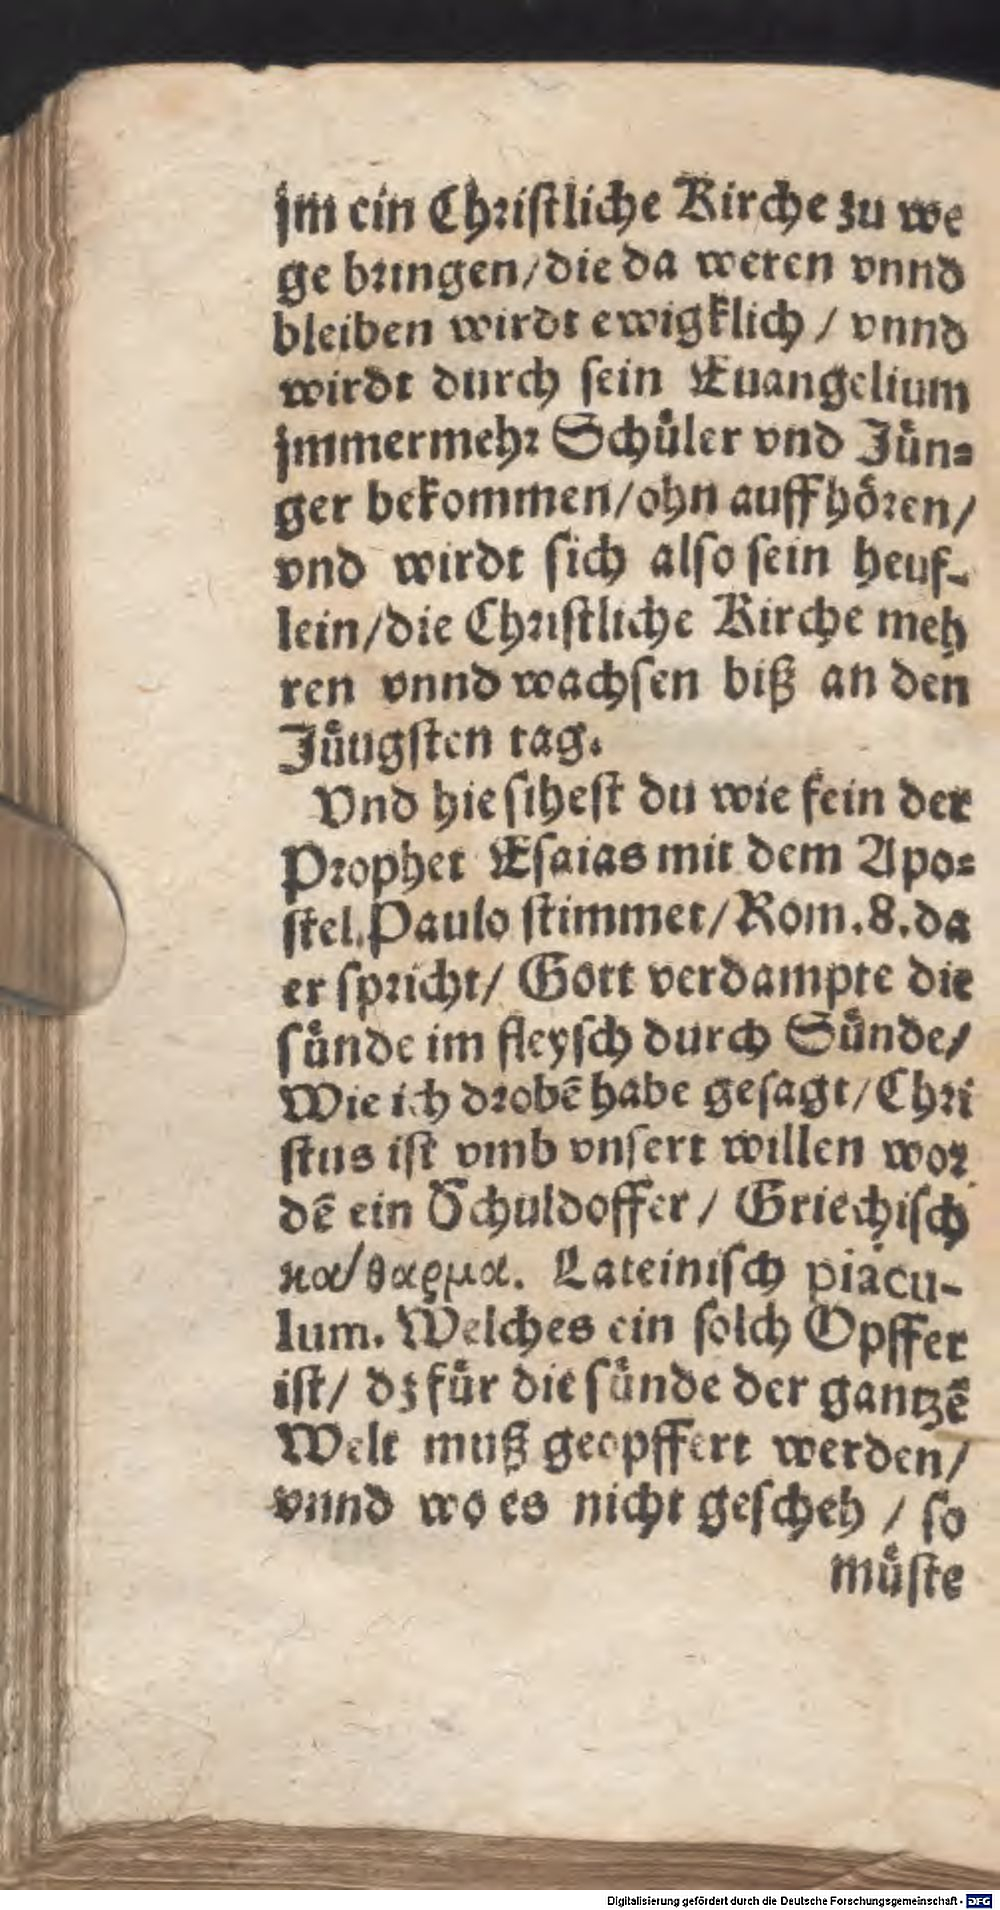 jm ein Chriſtliche Kirche zu we
ge bringen/die da weren vnnd
bleiben wirdt ewigklich / vnnd
wirdt durch ſein Euangelium
jmmermehr Schuͤler vnd Juͤn⸗
ger bekommen/ohn auffhoͤren/
vnd wirdt ſich alſo ſein heuf-
lein/die Chriſtliche Kirche meh
ren vnnd wachſen biß an den
Juͤngſten tag.
Vnd hie ſiheſt du wie fein der
Prophet Eſaias mit dem Apo⸗
ſtel Paulo ſtimmet/Rom.8.da
er ſpricht/ Gott verdampte die
ſuͤnde im fleyſch durch Suͤnde/
Wie ich drobē habe geſagt/Chri
ſtus iſt vmb vnſert willen wor
dē ein Schuldoffer / Griechiſch
κα/θαρμα. Lateiniſch piacu-
lum. Welches ein ſolch Opffer
iſt/ dz fuͤr die ſuͤnde der gantzē
Welt muß geopffert werden/
vnnd wo es nicht geſcheh / ſo
muͤſte
Digitalisierung gefördert durch die Deutsche Forschungsgemeinschaft - DFG